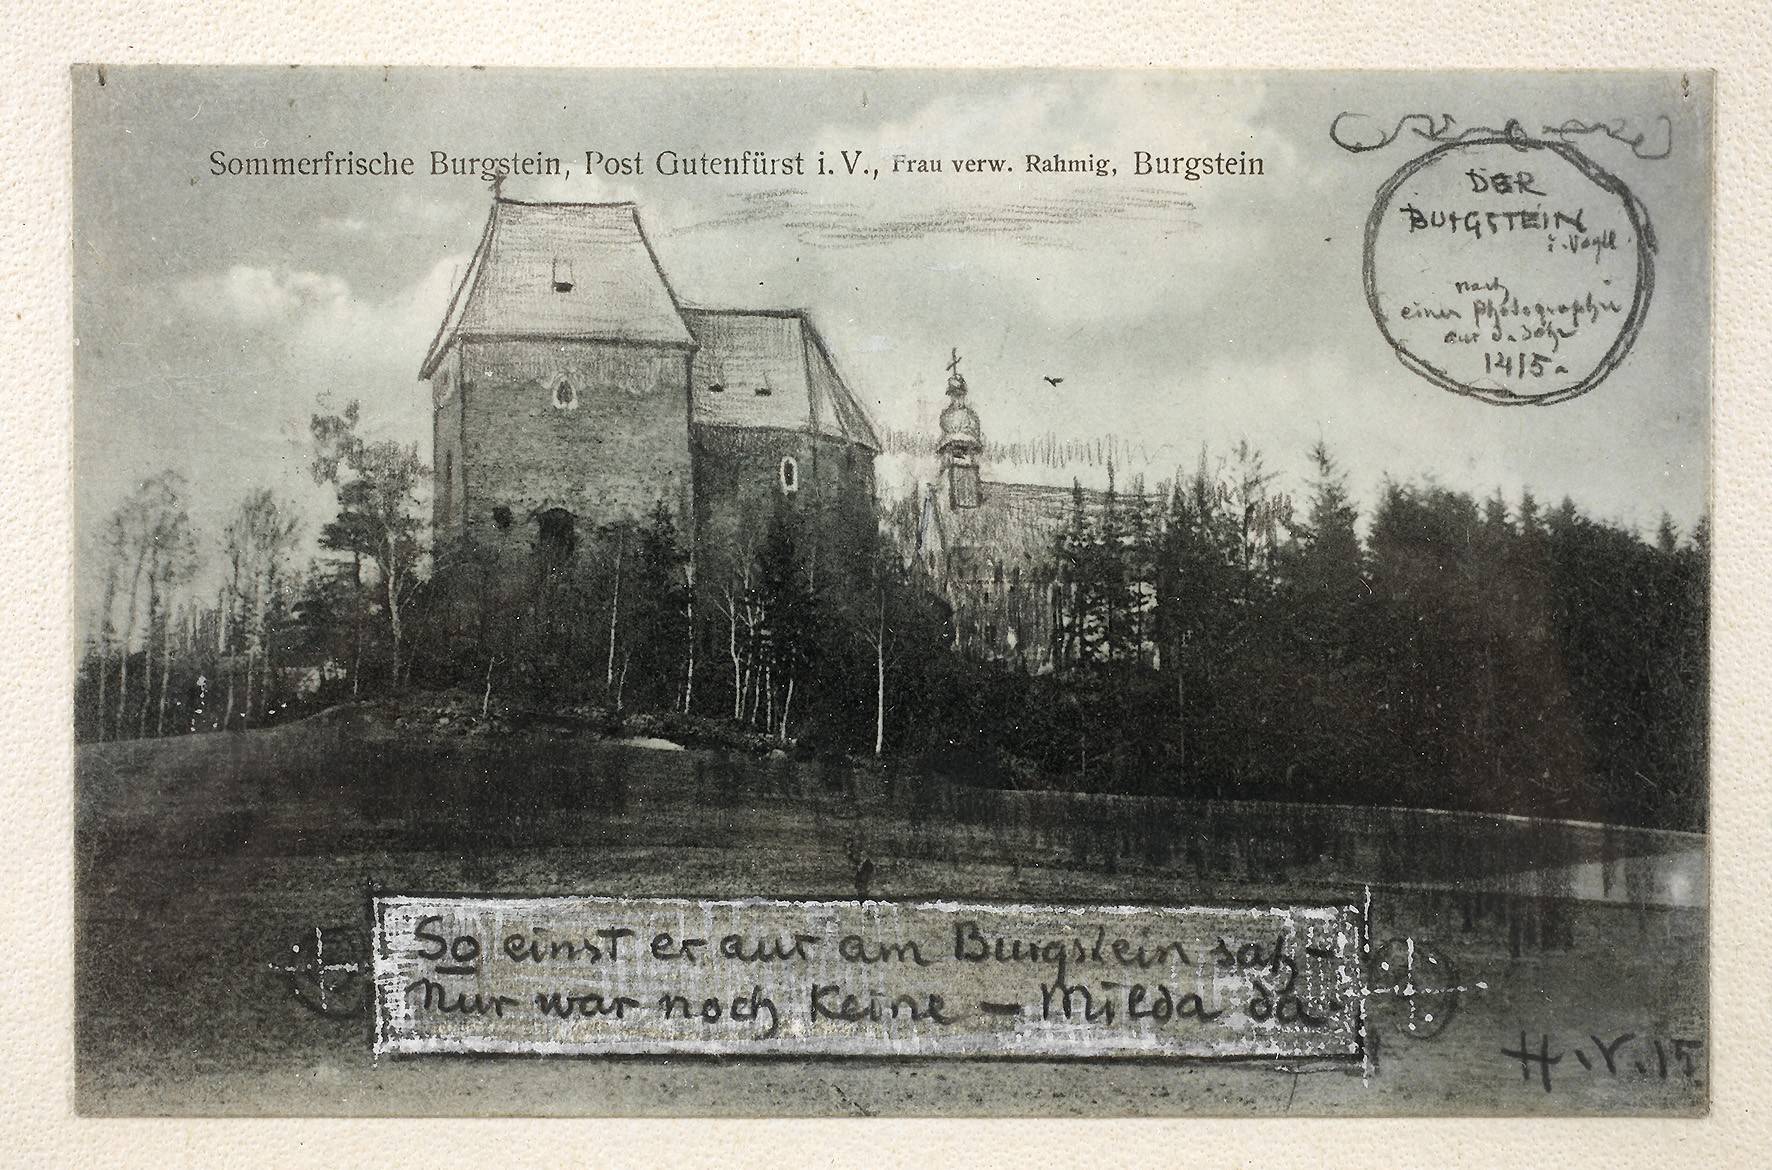 Sommerfrische Burgstein, Post Gutenfürst i. V., Frau verw. Rahmig, Burgstein
DER
BURGSTEIN
i. Vogtl.
nach
einer Photographie
aus d. Jahr
1415.
So einst er aus am Burgstein sah –
Nur war noch keine – Milda da
H. V. 15